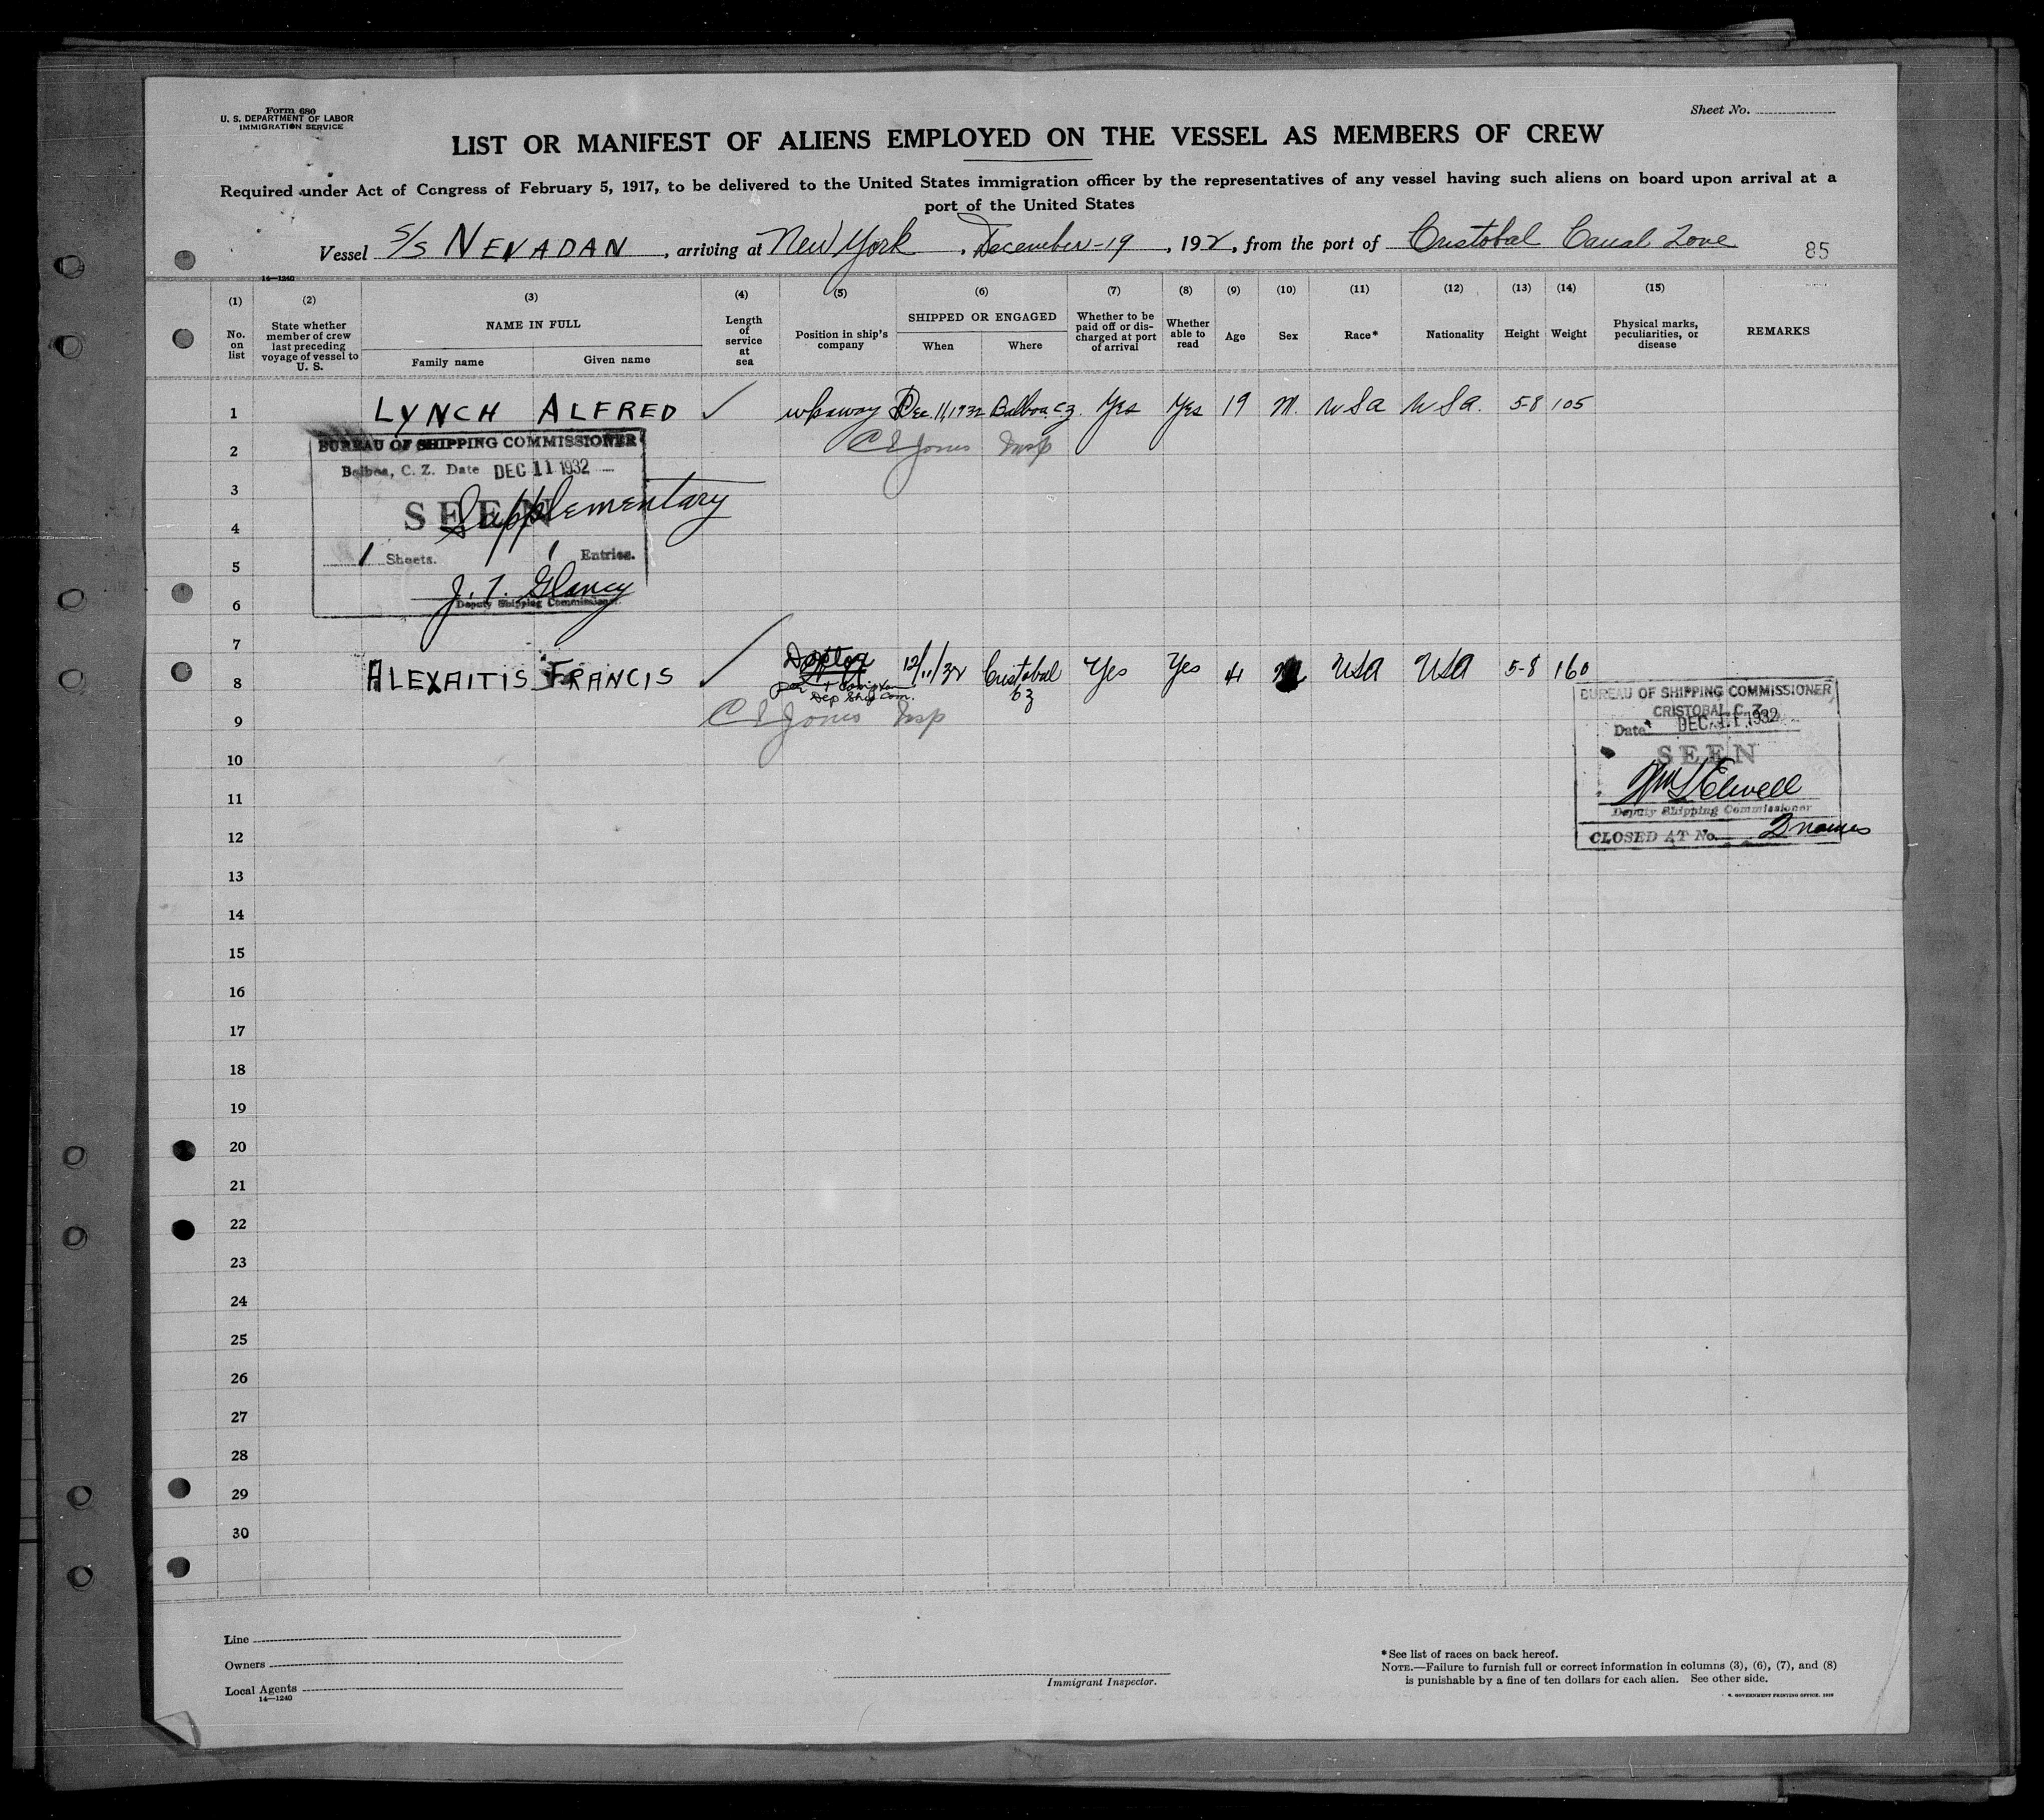 Form 680
U. S. DEPARTMENT OF LABOR
IMMIGRATION SERVICE
Sheet No.
LIST OR MANIFEST OF ALIENS EMPLOYED ON THE VESSEL AS MEMBERS OF CREW
Required under Act of Congress of February 5, 1917, to be delivered to the United States immigration officer by the representatives of any vessel having such aliens on board upon arrival at a
port of the United States
Vessel S/S NEVADAN, arriving at New York, December-19, 192, from the port of Cristobal Canal Zone
85
14—1240
(1) (2) (3) (4) (5) (6) (7) (8) (9) (10) (11) (12) (13) (14) (15)
No. on list
State whether member of crew last preceding voyage of vessel to U. S.
NAME IN FULL
Family name Given name
Length of service at sea
Position in ship's company
SHIPPED OR ENGAGED
When Where
Whether to be paid off or discharged at port of arrival
Whether able to read
Age
Sex
Race*
Nationality
Height
Weight
Physical marks, peculiarities, or disease
REMARKS
1 LYNCH ALFRED ✓ wkaway Dec. 11, 1932 Balboa C.Z. Yes Yes 19 M. USA USA. 5-8 105
2 C E Jones Insp
BUREAU OF SHIPPING COMMISSIONER
Balboa, C. Z. Date DEC 11 1932
3
SEEN
Supplementary
4
1 Sheets. 1 Entries.
5
J. T. Glancy
Deputy Shipping Commissioner.
6
7
8 ALEXAITIS FRANCIS ✓ 12/11/32 Cristobal CZ Yes Yes USA USA 5-8 160
Dep Shg Com.
9 C E Jones Insp
BUREAU OF SHIPPING COMMISSIONER
CRISTOBAL C. Z.
Date DEC 11 1932
SEEN
Wm L Elwell
Deputy Shipping Commissioner
CLOSED AT No. 2 names
10
11
12
13
14
15
16
17
18
19
20
21
22
23
24
25
26
27
28
29
30
Line
Owners
Local Agents
14—1240
Immigrant Inspector.
*See list of races on back hereof.
NOTE.—Failure to furnish full or correct information in columns (3), (6), (7), and (8)
is punishable by a fine of ten dollars for each alien. See other side.
GOVERNMENT PRINTING OFFICE